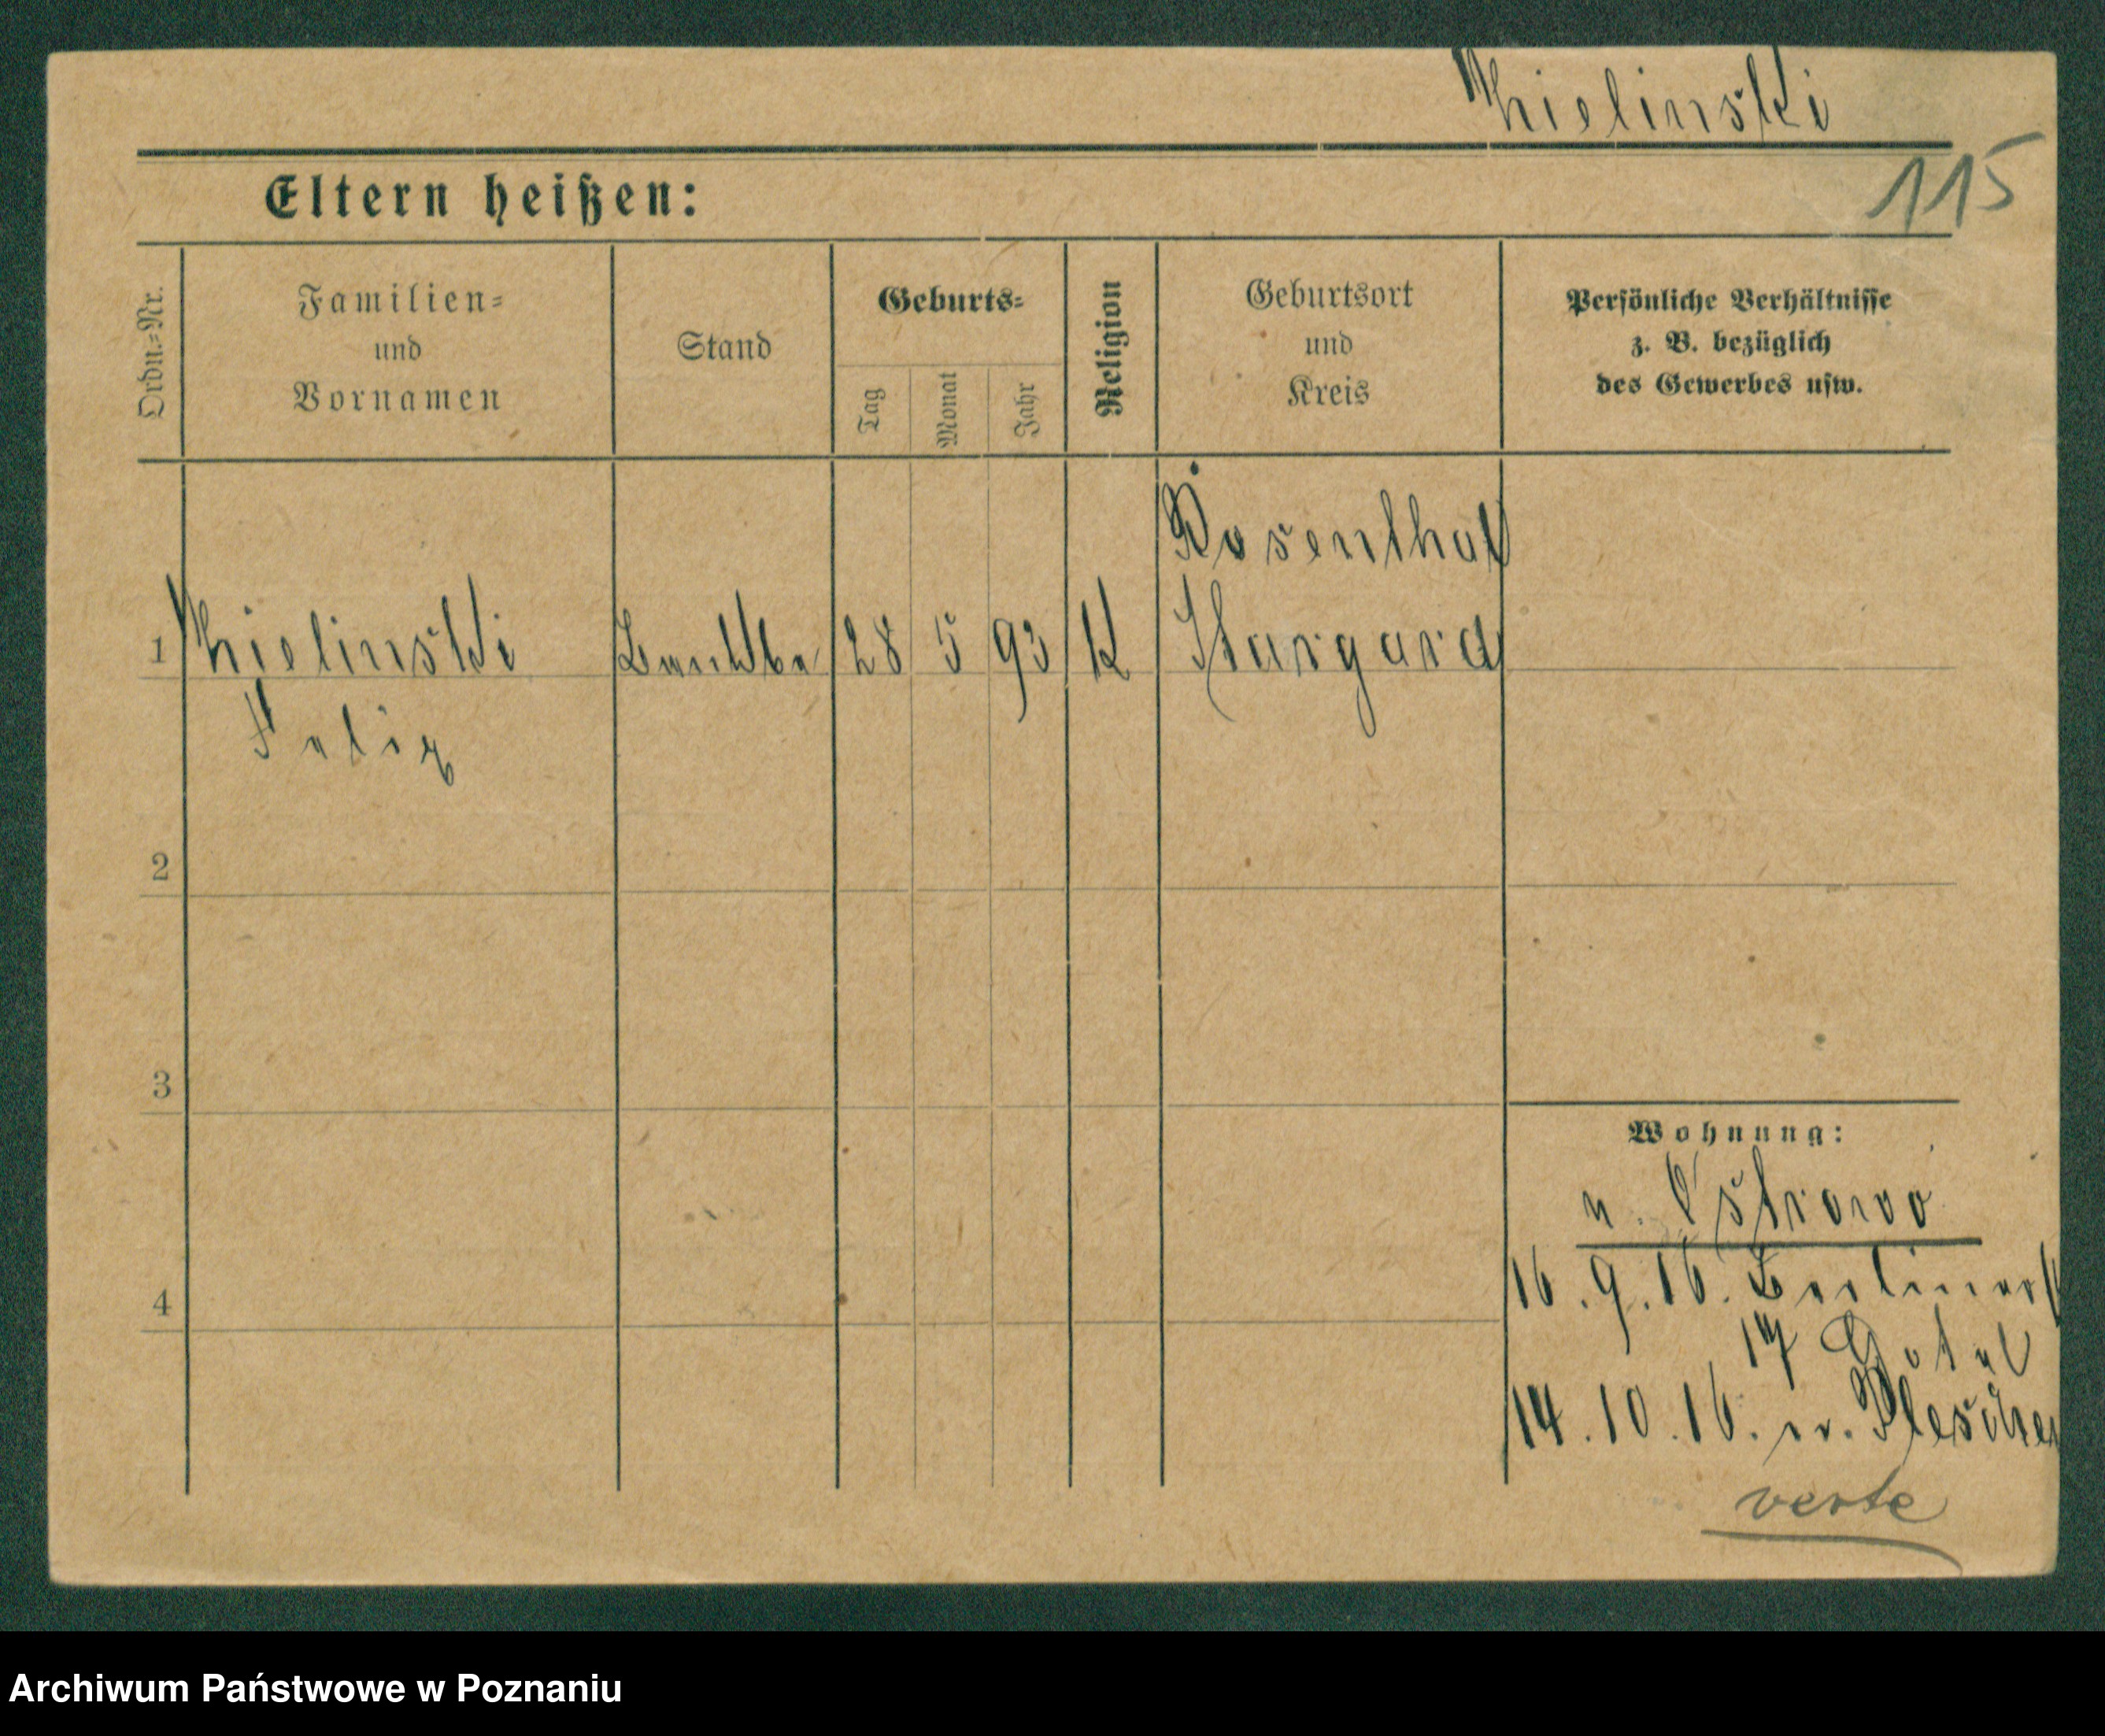 Thielinski
115
Eltern heißen:
Ordn.-Nr.
Familien-
und
Vornamen
Stand
Geburts-
Tag
Monat
Jahr
Religion
Geburtsort
und
Kreis
Persönliche Verhältnisse
z. B. bezüglich
des Gewerbes usw.
Rosenthal
1 Thielinski 28 5 93 K Stargard
Felix
2
3
4
Wohnung:
n. Ostrowo
16.9.16. Berlinerst
17 Hotel
14.10.16. n. Pleschen
verte
Archiwum Państwowe w Poznaniu